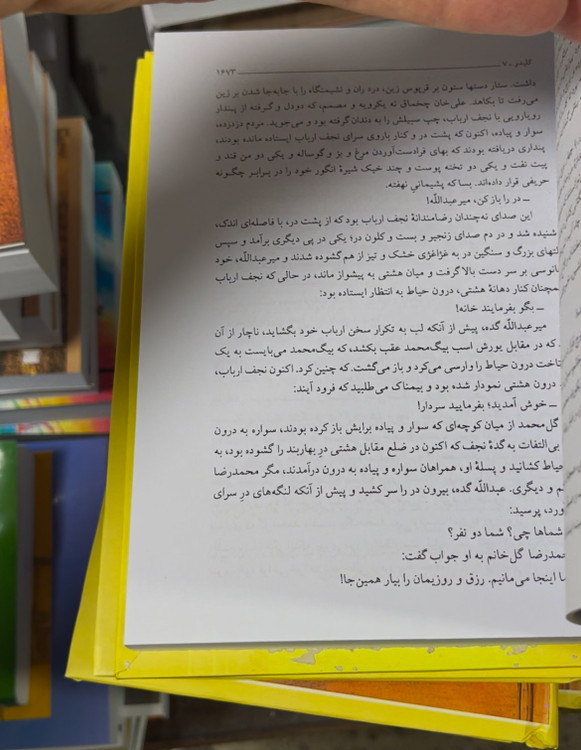 کلیدر ـ ۷ ۱۶۷۳
داشت. ستار دستها ستون بر قرپوس زین، درد ران و نشیمنگاه را با جابه‌جا شدن بر زین
می‌رفت تا بکاهد. علی‌خان چخماق نه یکرویه و مصمم، که دودل و گرفته از پندار
رویارویی با نجف ارباب، چپ سبیلش را به دندان گرفته بود و می‌جوید. مردم دزدزده،
سوار و پیاده، اکنون که پشت در و کنار باروی سرای نجف ارباب ایستاده مانده بودند،
پنداری دریافته بودند که بهای فرادست‌آوردن مرغ و بز و گوساله و یکی دو من قند و
پیت نفت و یکی دو تخته پوست و چند خیک شیرهٔ انگور خود را در برابر چگونه
حریفی قرار داده‌اند. بسا که پشیمانیِ نهفته.
ــ در را باز کن، میرعبدالله!
این صدای نه‌چندان رضامندانهٔ نجف ارباب بود که از پشت در، با فاصله‌ای اندک،
شنیده شد و در دم صدای زنجیر و بست و کلون در؛ یکی در پی دیگری برآمد و سپس
لتهای بزرگ و سنگین در به غژاغژی خشک و تیز از هم گشوده شدند و میرعبدالله، خود
فانوسی بر سر دست بالا گرفت و میان هشتی به پیشواز ماند، در حالی که نجف ارباب
همچنان کنار دهانهٔ هشتی، درون حیاط به انتظار ایستاده بود:
ــ بگو بفرمایند خانه!
میرعبدالله گده، پیش از آنکه لب به تکرار سخن ارباب خود بگشاید، ناچار از آن
که در مقابل یورش اسب بیگ‌محمد عقب بکشد، که بیگ‌محمد می‌بایست به یک
تاخت درون حیاط را وارسی می‌کرد و باز می‌گشت. که چنین کرد. اکنون نجف ارباب،
درون هشتی نمودار شده بود و بیمناک می‌طلبید که فرود آیند:
ــ خوش آمدید؛ بفرمایید سردار!
گل‌محمد از میان کوچه‌ای که سوار و پیاده برایش باز کرده بودند، سواره به درون
بی‌التفات به گدهٔ نجف که اکنون در ضلع مقابل هشتی درِ بهاربند را گشوده بود، به
حیاط کشانید و پسلهٔ او، همراهان سواره و پیاده به درون درآمدند، مگر محمدرضا
م و دیگری. عبدالله گده، بیرون در را سر کشید و پیش از آنکه لنگه‌های درِ سرای
ورد، پرسید:
شماها چی؟ شما دو نفر؟
حمدرضا گل‌خانم به او جواب گفت:
ما اینجا می‌مانیم. رزق و روزیمان را بیار همین‌جا!